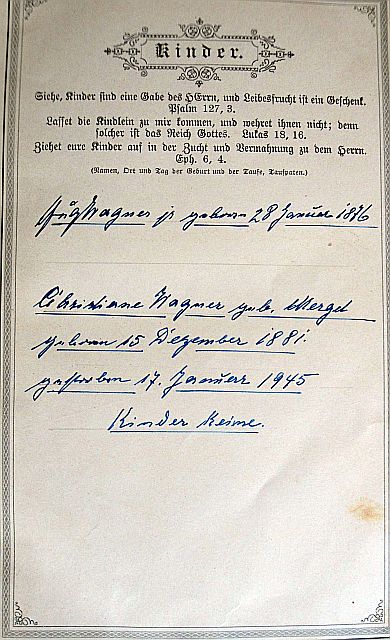 Kinder.
Siehe, Kinder sind eine Gabe des HErrn, und Leibesfrucht ist ein Geschenk.
Psalm 127, 3.
Lasset die Kindlein zu mir kommen, und wehret ihnen nicht; denn
solcher ist das Reich Gottes. Lukas 18, 16.
Ziehet eure Kinder auf in der Zucht und Vermahnung zu dem Herrn.
Eph. 6, 4.
(Namen, Ort und Tag der Geburt und der Taufe, Taufpaten.)
Aug Wagner jr geboren 28 Januar 1876
Christiane Wagner geb. Mergel
geboren 15 Dezember 1881.
gestorben 17. Januar 1945
Kinder Keine.